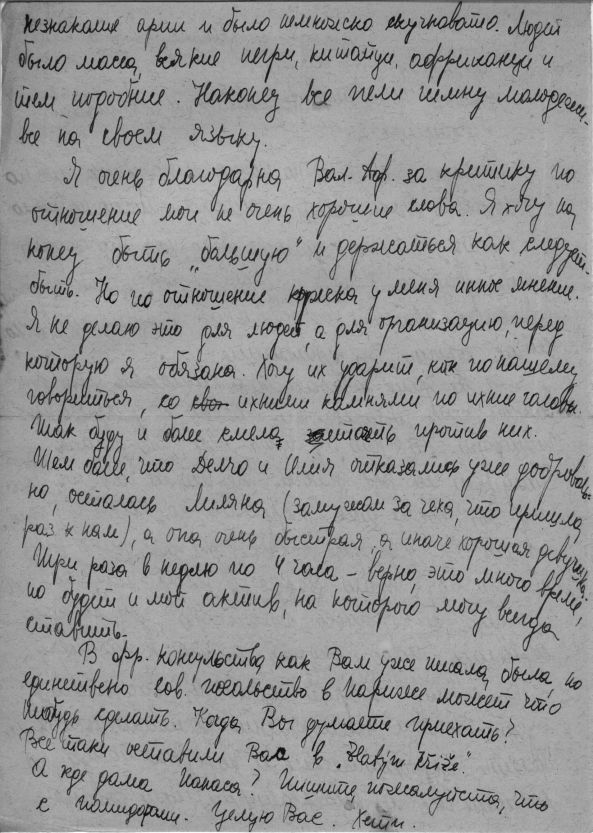 незнакомие арии и было немножско скучновато. Людей
было масса, всякие негри, китайци, африканци и
тем подобние. Наконец все пели гимну молодежи-
все на своем языку.
Я очень благодарна Вал. Аф. за критику по
отношение мои не очень хорошие слова. Я хочу на
конец быть „большую" и держаться как следует
быть. Но по отношение у меня инное мнение.
Я не делаю это для людей а для организацию, перед
которую я обязана. Хочу их ударит, как по нашему
говориться, со ихними камнями по ихние головы.
Так буду и более смела против них.
Тем более, что Делчо и Илия отказались уже доброволь-
но, осталась Лиляна (замужом за чеха, что пришла
раз к нам), а она очень быстрая, а иначе хорошая девушка.
Три раза в неделю по 4 часа – верно, это много време,
но будет и мой актив, на которого могу всегда
ставить.
В фр. консульства, как Вам уже писала, была, но
единствено сов. посольство в Париже может что
нибудь сделать. Когда Вы думаете приехать?
Все таки оставили Вас в „Hlavním Kříže".
А где дама Папаса? Пишите пожалуйста, что
с помидорами. Целую Вас. Хети.